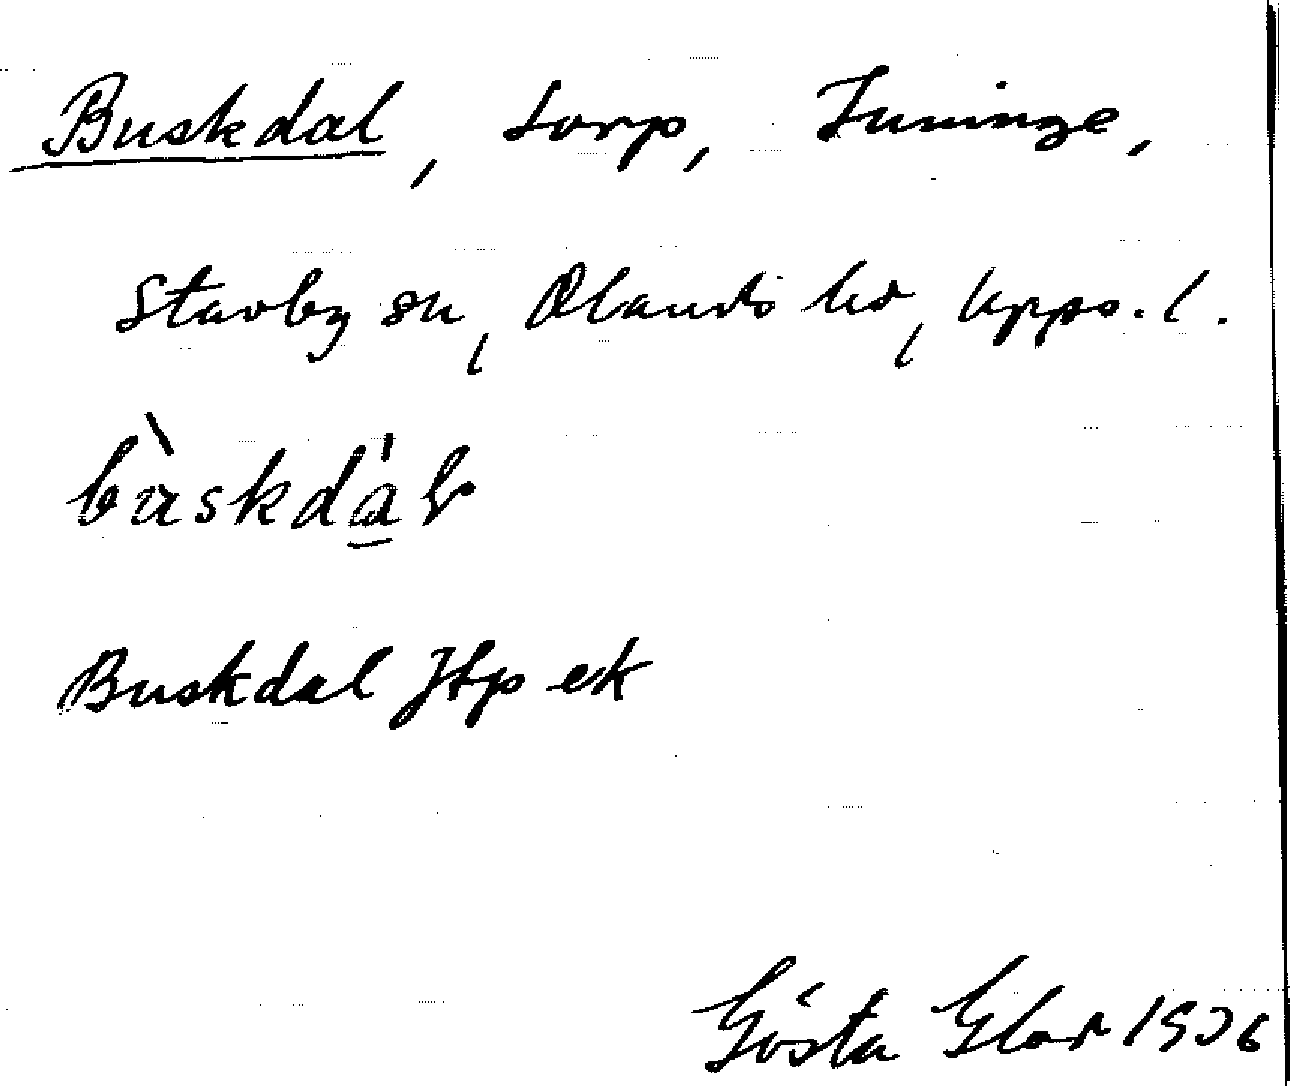 Buskdal, torp, Tuninge,
Stavby sn, Olands hd, Upps. l.
bùskdàɫ
Buskdal Jfp ek
Gösta Glar 1936